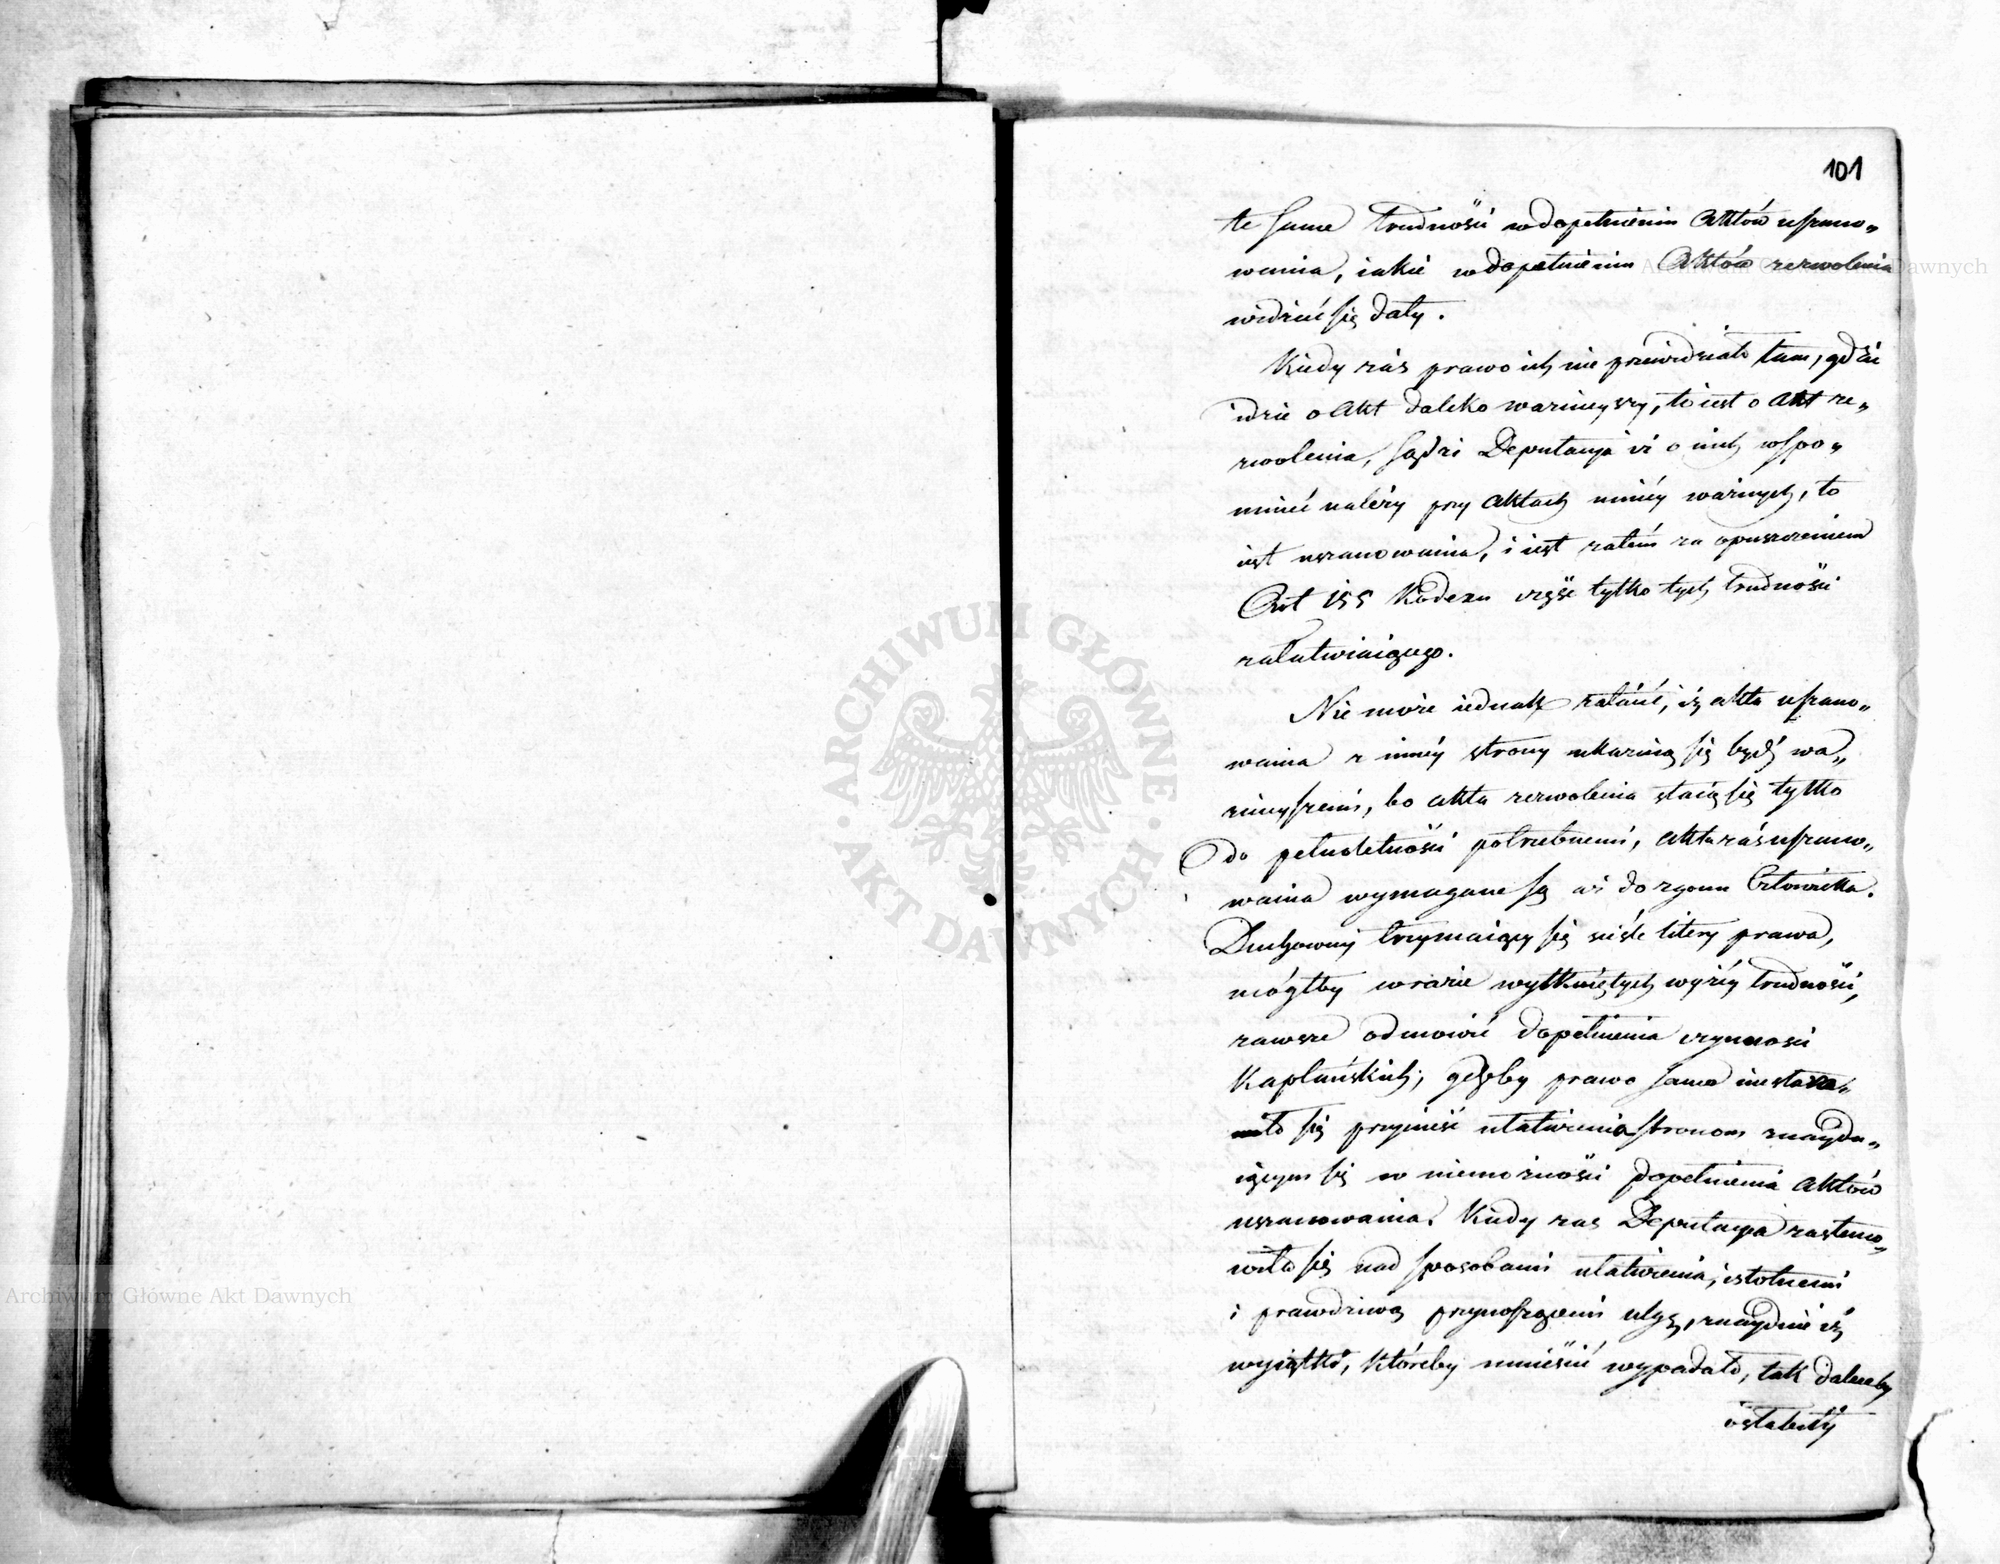 101
te same trudności w dopełnieniu Aktów uszano„
wania, iakie w dopełnieniu Aktów zezwolenia
widzieć się dały.
Kiedy záś prawo ich nie przewidziało tam, gdzie
idzie o Akt daleko ważnieyszy, to iest o Akt ze„
zwolenia, sądzi Deputacya iż o nich wspo„
mnieć należy przy Aktach mniéy ważnych, to
iest uszanowania, i iest zatém za opuszczeniem
Art 155 Kodexu część tylko tych trudności
załatwiaiącego.
Nie może iednak zataić, iż akta uszano„
wania z innéy strony ukazuią się bydź wa„
żnieyszemi, bo akta zezwolenia staią się tylko
do pełnoletności potrzebnemi, akta záś uszano„
wania wymagane są aż do zgonu Człowieka.
Duchowny trzymaiący się ściśle litery prawa,
mógłby w razie wytkniętych wyżéy trudności,
zawsze odmówić dopełnienia czynności
Kapłańskich, gdyby prawo samo nie stara„
ło się przynieść ułatwienia stronom znaydu„
iącym się w niemożności dopełnienia Aktów
uszanowania. Kiedy zaś Deputacya zastano„
wiła się nad sposobami ułatwienia, istotnemi
i prawdziwą przynoszącemi ulgę, znaydzie iż
wyiątki, któreby umieścić wypadało, tak daleceby
osłabiły
ARCHIWUM GŁÓWNE AKT DAWNYCH
Archiwum Główne Akt Dawnych
Archiwum Główne Akt Dawnych